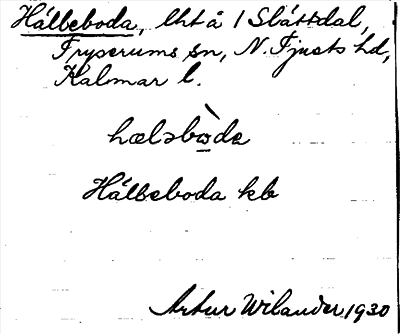 Hälleboda, lht å 1 Slättdal,
Fryserums sn, N. Tjusts hd,
Kalmar l.
hæləbòda
Hälleboda kb
Artur Wilander 1930